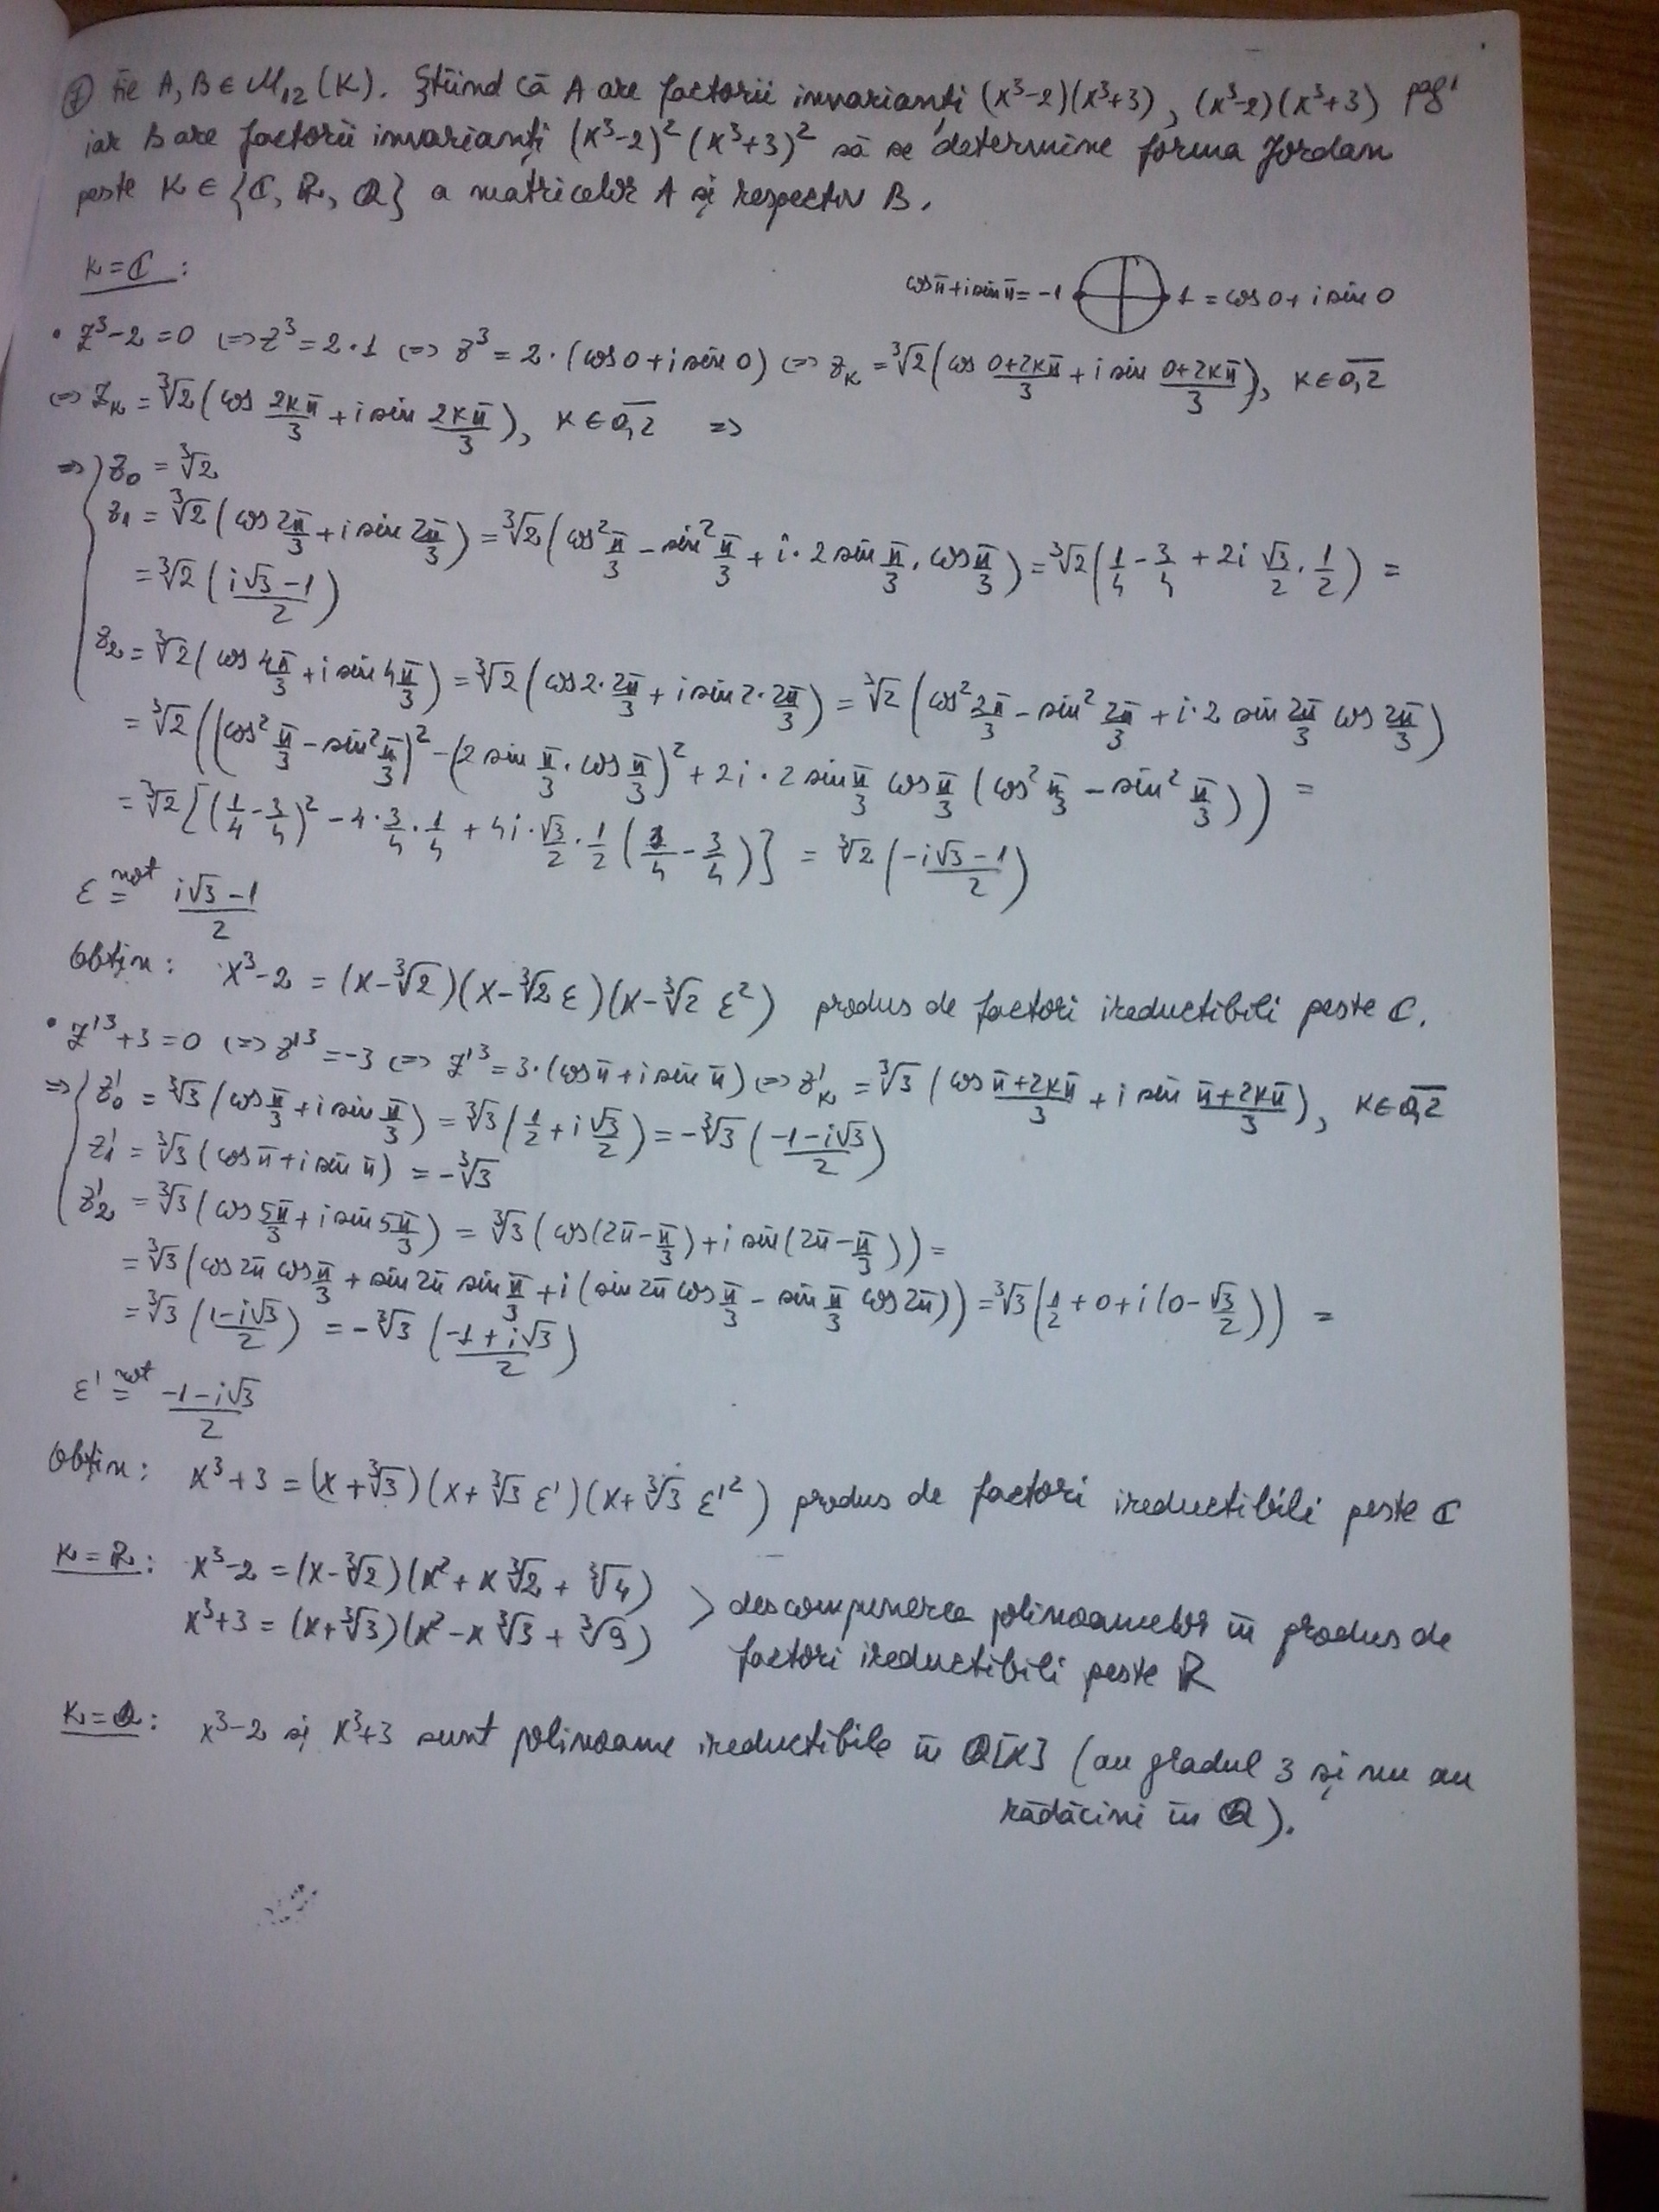 ① Fie A, B ∈ M₁₂(K). Știind că A are factorii invarianți (x³-2)(x³+3), (x³-2)(x³+3) pag 1
iar B are factorii invarianți (x³-2)²(x³+3)² să se determine forma Jordan
peste K ∈ {ℂ, ℝ, ℚ} a matricelor A și respectiv B.
K=ℂ :
cos π + i sin π = -1    1 = cos 0 + i sin 0
• z³-2=0 (=> z³=2·1 (=> z³=2·(cos 0+i sin 0) (=> z_k = ∛2(cos (0+2kπ)/3 + i sin (0+2kπ)/3), k∈0,2
(=> z_k = ∛2(cos 2kπ/3 + i sin 2kπ/3), k∈0,2 =>
=> { z₀ = ∛2
z₁ = ∛2(cos 2π/3 + i sin 2π/3) = ∛2(cos² π/3 - sin² π/3 + i·2 sin π/3 · cos π/3) = ∛2(1/4 - 3/4 + 2i √3/2 · 1/2) =
= ∛2((i√3-1)/2)
z₂ = ∛2(cos 4π/3 + i sin 4π/3) = ∛2(cos 2·2π/3 + i sin 2·2π/3) = ∛2(cos² 2π/3 - sin² 2π/3 + i·2 sin 2π/3 cos 2π/3)
= ∛2((cos² π/3 - sin² π/3)² - (2 sin π/3 · cos π/3)² + 2i·2 sin π/3 cos π/3 (cos² π/3 - sin² π/3)) =
= ∛2[(1/4 - 3/4)² - 4·3/4·1/4 + 4i·√3/2·1/2(1/4 - 3/4)] = ∛2((-i√3-1)/2)
ε not= (i√3-1)/2
Obțin: x³-2 = (x-∛2)(x-∛2 ε)(x-∛2 ε²) produs de factori ireductibili peste ℂ.
• z'³+3=0 (=> z'³=-3 (=> z'³=3·(cos π+i sin π) (=> z'_k = ∛3(cos (π+2kπ)/3 + i sin (π+2kπ)/3), k∈0,2
=> { z'₀ = ∛3(cos π/3 + i sin π/3) = ∛3(1/2 + i √3/2) = -∛3((-1-i√3)/2)
z'₁ = ∛3(cos π+i sin π) = -∛3
z'₂ = ∛3(cos 5π/3 + i sin 5π/3) = ∛3(cos(2π-π/3) + i sin(2π-π/3)) =
= ∛3(cos 2π cos π/3 + sin 2π sin π/3 + i(sin 2π cos π/3 - sin π/3 cos 2π)) = ∛3(1/2 + 0 + i(0 - √3/2)) =
= ∛3((1-i√3)/2) = -∛3((-1+i√3)/2)
ε' not= (-1-i√3)/2
Obțin: x³+3 = (x+∛3)(x+∛3 ε')(x+∛3 ε'²) produs de factori ireductibili peste ℂ
K=ℝ: x³-2 = (x-∛2)(x²+x∛2+∛4)
x³+3 = (x+∛3)(x²-x∛3+∛9) > descompunerea polinoamelor în produs de
factori ireductibili peste ℝ
K=ℚ: x³-2 și x³+3 sunt polinoame ireductibile în ℚ[x] (au gradul 3 și nu au
rădăcini în ℚ).